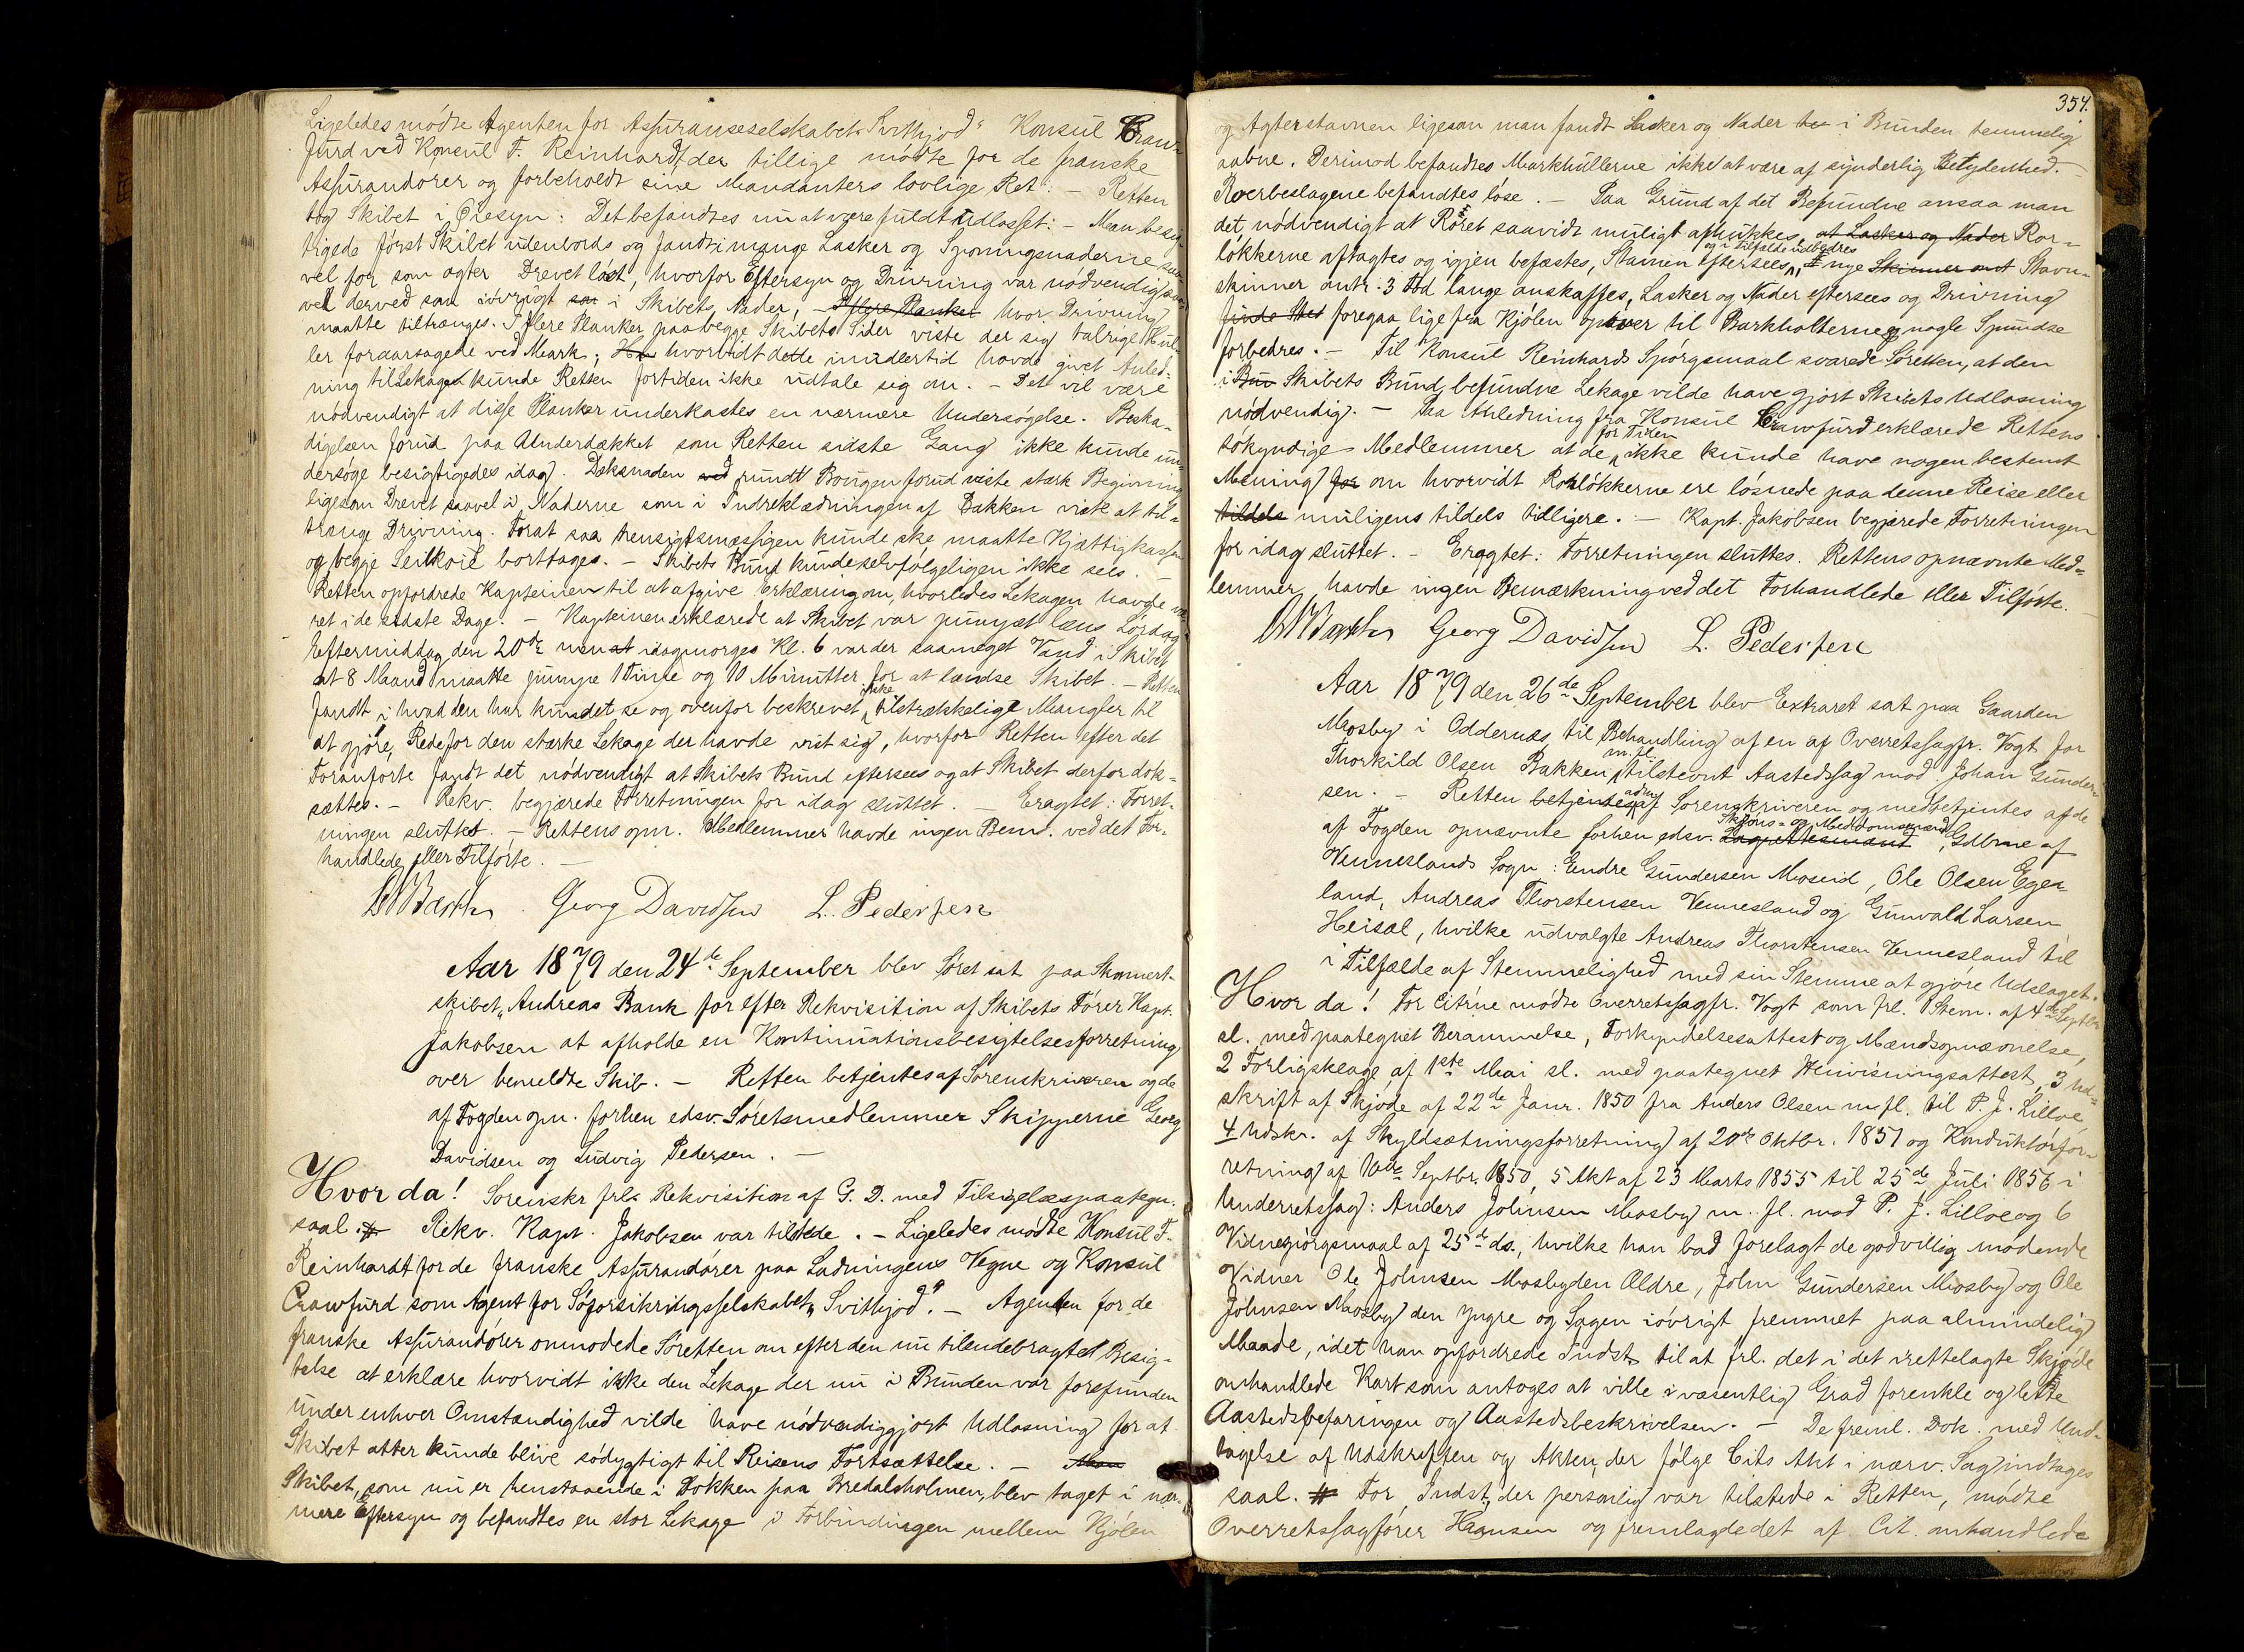 Ligeledes mødte Agenten for Assuranseselskabet „Svithjod“ Konsul Craw-
furd ved Konsul F. Reinhardt, der tillige mødte for de franske
Assurandører og forbeholdt sine Mandanters lovlige Ret. – Retten
tog Skibet i Øiesyn: Det befandtes nu at være fuldt udlosset: – Man besig-
tigede først Skibet udenbords og fandt i mange Lasker og Sponingsnaderne saa-
vel for som agter Drevet løst, hvorfor Eftersyn og Drivning var nødvendig saa-
vel derved som iøvrigt som i Skibets Nader, – I flere Planker hvor Drivning
maatte tiltrænges. I flere Planker paa begge Skibets Sider viste der sig talrige Hul-
ler foraarsagede ved Mark; Ho hvorvidt dette imidlertid havde givet Anled-
ning til Lekagen kunde Retten fortiden ikke udtale sig om. – Det vil være
nødvendigt at disse Planker underkastes en nærmere Undersøgelse. Beska-
digelsen forud paa Underdækket som Retten sidste Gang ikke kunde un-
dersøge besigtigedes idag. Dæksnaden ved rundt Bougen forud viste stærk Begivning
ligesom Drevet saavel i Naderne som i Indreklædningen af Bakken viste at til-
trænge Drivning. Forat saa hensigtsmæssigen kunde ske maatte Kjættigkassen
og begge Seilkøie borttages. – Skibets Bund kunde selvfølgeligen ikke sees. –
Retten opfordrede Kapteinen til at afgive Erklæring om, hvorledes Lekagen havde væ-
ret i de sidste Dage. – Kapteinen erklærede at Skibet var pumpet læns Lørdag
Eftermiddag den 20de men at idagmorges Kl. 6 var der saameget Vand i Skibet
at 8 Mand maatte pumpe 1 Time og 10 Minutter for at lændse Skibet. – Retten
fandt i hvad den har kundet se og ovenfor beskrevet ikke tilstrækkelige Mangler til
at gjøre Rede for den stærke Lekage der havde vist sig, hvorfor Retten efter det
Foranførte fandt det nødvendigt at Skibets Bund eftersees og at Skibet derfor dok-
sættes. – Rekv. begjærede Forretningen for idag sluttet. – Eragtet: Forret-
ningen sluttet. – Rettens opn. Medlemmer havde ingen Bem. ved det For-
handlede eller Tilførte. –
Georg Davidsen L. Pedersen
Aar 1879 den 24de September blev Søret sat paa Skonnert-
skibet „Andreas Bank for efter Rekvisition af Skibets Fører Kapt.
Jakobsen at afholde en Kontinuationsbesigtelsesforretning
over bemeldte Skib. – Retten betjentes af Sorenskriveren og de
af Fogden opn. forhen edsv. Søretsmedlemmer Skipperne Georg
Davidsen og Ludvig Pedersen. –
Hvor da! Sorenskr frl. Rekvisition af G. D. med Tilsigelsespaategn.
saal. # Rekv. Kapt. Jakobsen var tilstede. – Ligeledes mødte Konsul F.
Reinhardt for de franske Assurandører paa Ladningens Vegne og Konsul
Crawfurd som Agent for Søforsikringsselskabet „Svithjod“. – Agenten for de
franske Assurandører anmodede Søretten om efter den nu tilendebragte Besig-
telse at erklære hvorvidt ikke den Lekage der nu i Bunden var forefunden
under enhver Omstændighed vilde have nødvendiggjort Udlosning for at
Skibet atter kunde blive sødygtigt til Reisens Fortsættelse. – Man
Skibet, som nu er henstaaende i Dokken paa Bredalsholmen, blev taget i nær-
mere Eftersyn og befandtes en stor Lekage i Forbindingen mellem Kjølen
354.
og Agterstavnen ligesom man fandt Lasker og Nader be i Bunden temmelig
aabne. Derimod befandtes Markhullerne ikke at være af synderlig Betydenhed. –
Roerbeslagene befandtes løse. – Paa Grund af det Befundne ansaa man
det nødvendigt at Roret saavidt muligt afhukkes, at Lasker og Nader Ror-
løkkerne aftagtes og igjen befæstes, Stavnen eftersees og i Tilfælde udbedres, # nye Skinner omt Stavn-
skinner antr. 3 Fod lange anskaffes, Lasker og Nader eftersees og Drivning
finde Sted foregaa lige fra Kjølen opover til Barkholterne og nogle Spundse
forbedres. – Til Konsul Reinhards Spørgsmaal svarede Søretten, at den
i Bun Skibets Bund befundne Lekage vilde have gjort Skibets Udlosning
nødvendig. – Paa Anledning fra Konsul Crawfurd erklærede Rettens
søkyndige Medlemmer at de for Tiden ikke kunde have nogen bestemt
Mening for om hvorvidt Rorløkkerne ere løsnede paa denne Reise eller
tildels muligens tildels tidligere. – Kapt. Jakobsen begjærede Forretningen
for idag sluttet. – Eragtet: Forretningen sluttes. Rettens opnævnte Med-
lemmer havde ingen Bemærkning ved det Forhandlede eller Tilførte. –
Georg Davidsen L. Pedersen
Aar 1879 den 26de September blev Extraret sat paa Gaarden
Mosby i Oddernæs til Behandling af en af Overretssagfr. Vogt for
Thorkild Olsen Bakken m. fl. tilstevnt Aastedssag mod Johan Gunder-
sen. – Retten betjentes adm af Sorenskriveren og medbetjentes af de
af Fogden opnævnte forhen edsv. Lagrettesmænd Skjøns- og Meddomsmænd, Gdbrne af
Venneslands Sogn: Endre Gundersen Moseid, Ole Olsen Ege-
land, Andreas Thorstensen Vennesland og Gunvald Larsen
Heisel, hvilke udvalgte Andreas Thorstensen Vennesland til
i Tilfælde af Stemmelighed med sin Stemme at gjøre Udslaget.
Hvor da! For Citrne mødte Overretssagfr. Vogt som frl. 1 Stevn. af 4de Septbr
sl. med paategnet Berammelse, Forkyndelsesattest og Mændsopnævnelse,
2 Forligsklage af 1ste Mai sl. med paategnet Henvisningsattest, 3 Ud-
skrift af Skjøde af 22de Janr. 1850 fra Anders Olsen m. fl. til P. J. Lilloe,
4 Udskr. af Skyldsætningsforretning af 20de Oktbr. 1851 og Konduktørfor-
retning af Septbr. 1850, 5 Akt af 23 Marts 1855 til 25de Juli 1856 i
Underretssag: Anders Johnsen Mosby m. fl. mod P. J. Lilloe og 6
Vidnespørgsmaal af 25de ds., hvilke han bad forelagt de godvillig mødende
Vidner Ole Johnsen Mosby den Ældre, John Gundersen Mosby og Ole
Johnsen Mosby den Yngre og Sagen iøvrigt fremmet paa almindelig
Maade, idet han opfordrede Indst. til at frl. det i det irettelagte Skjøde
omhandlede Kart som antoges at ville i væsentlig Grad forenkle og lette
Aastedsbefaringen og Aastedsbeskrivelsen. – De freml. Dok. med Und-
tagelse af Udskriften og Akten, der følge Cits Akt i nærv. Sag indtages
saal. # For Indst., der personlig var tilstede i Retten, mødte
Overretssagfører Hansen og fremlagde det af Cit. omhandlede